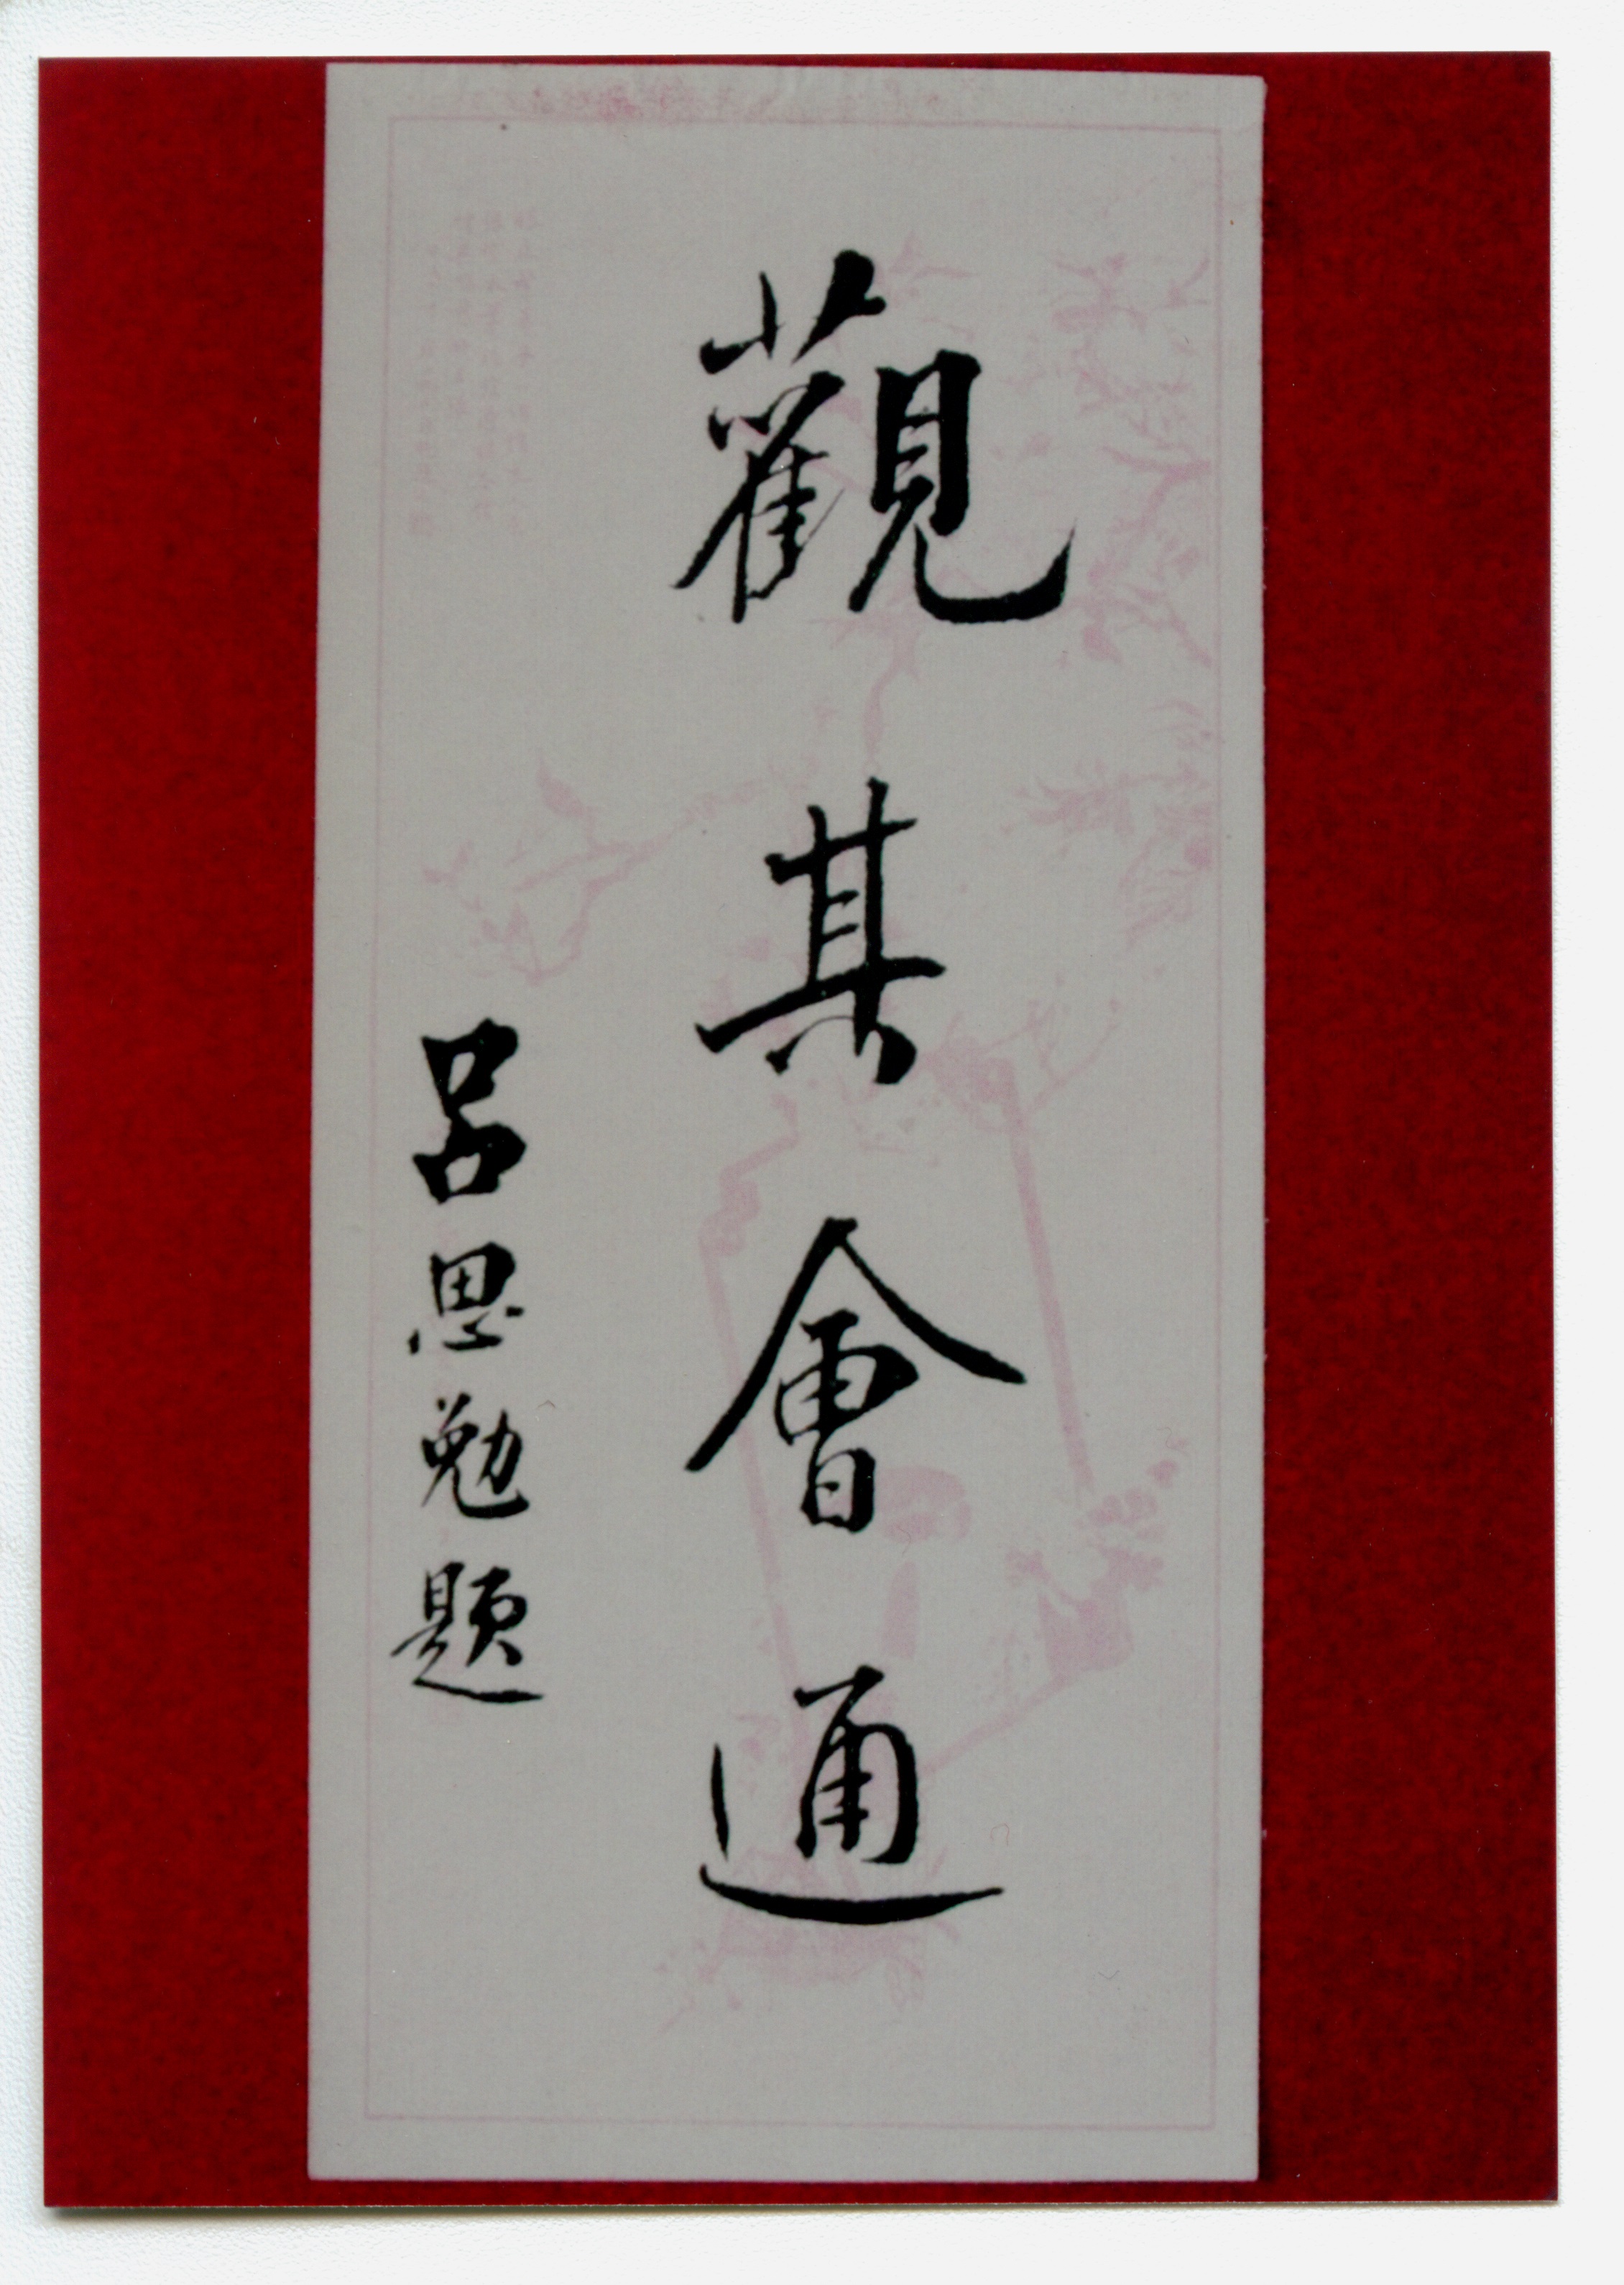 觀其會通
呂思勉題